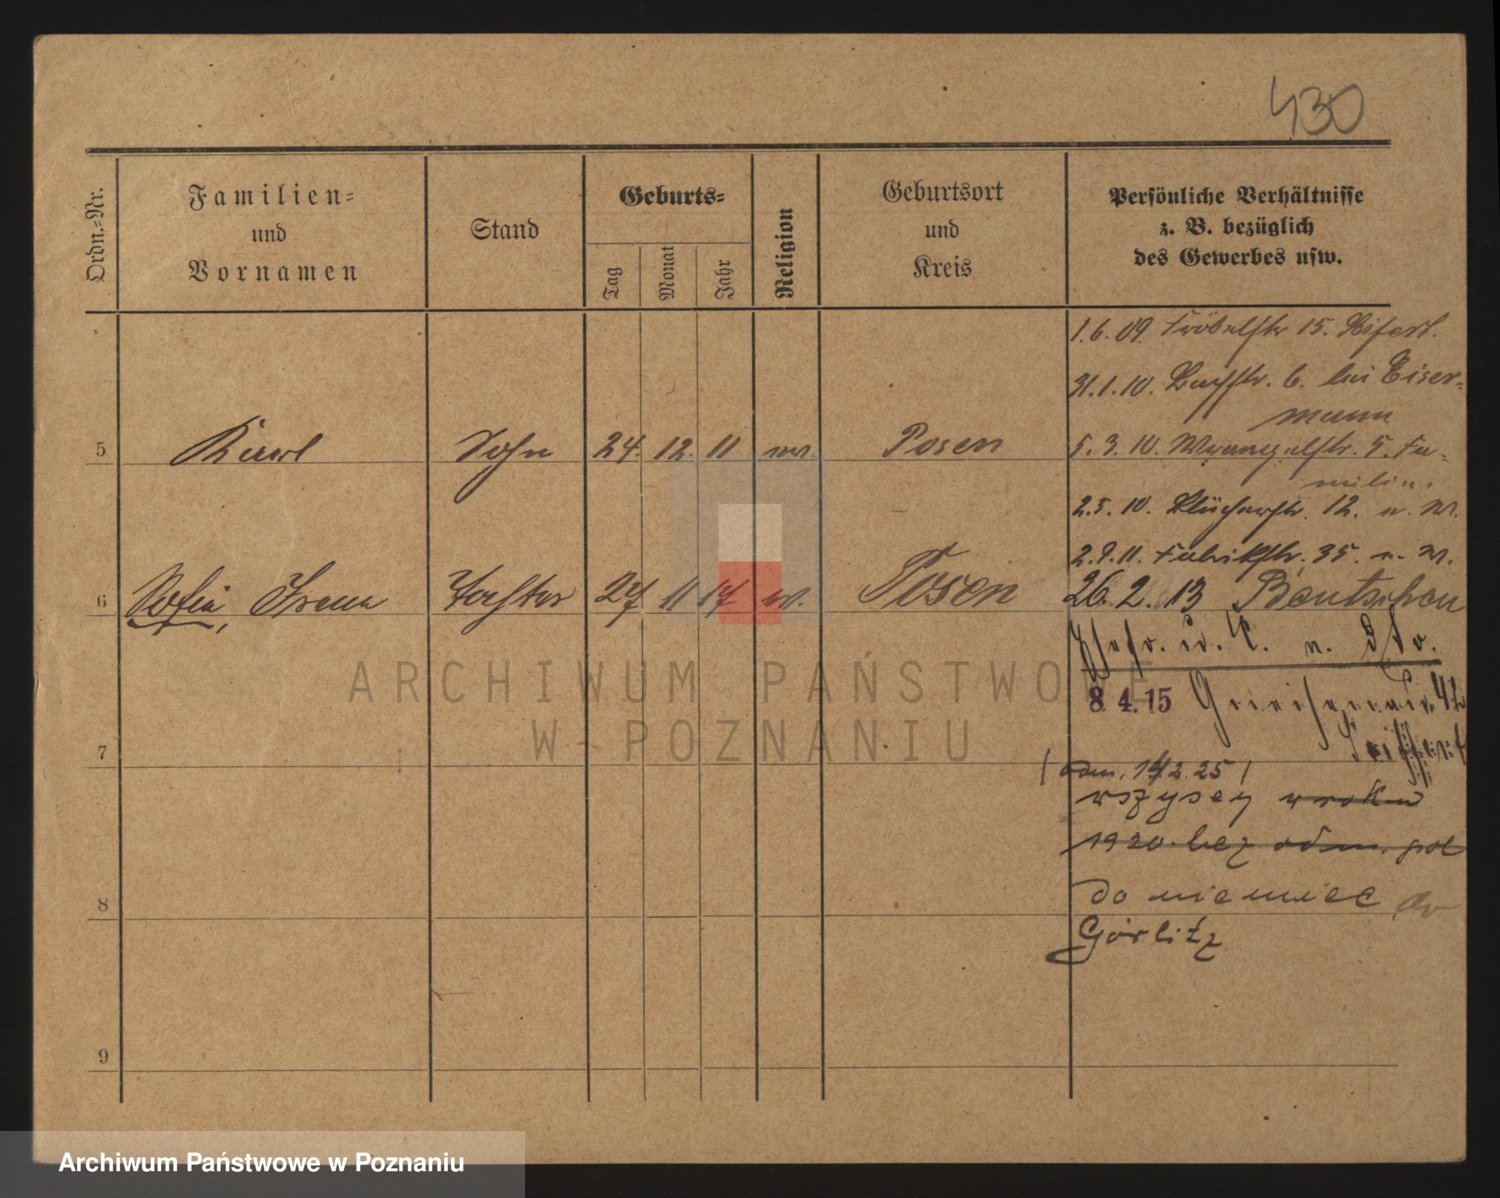 430
Ordn.=Nr.
Familien=
und
Vornamen
Stand
Geburts=
Tag
Monat
Jahr
Religion
Geburtsort
und
Kreis
Persönliche Verhältnisse
z. B. bezüglich
des Gewerbes usw.
1.6.09. Fröbelstr 15.
31.1.10. 6. bei Eiser-
mann
5 Karl Sohn 24. 12. 11 Posen
5.3.10. Wrangelstr. 5. Fa-
milie.
2.5.10. Blücherstr. 12. u. W.
2.9.11. Fabrikstr. 35. u. W.
6 Sofia, Irena Tochter 27 11 17 w. Posen
26.2.13 Bentschen
8.4.15 Gneisenaustr. 42
Seiffert
7
( odm. 14.2.25 )
wszyscy w roku
1920 bez odm. pol
8
do niemiec do
Görlitz
9
ARCHIWUM PAŃSTWOWE
W POZNANIU
Archiwum Państwowe w Poznaniu